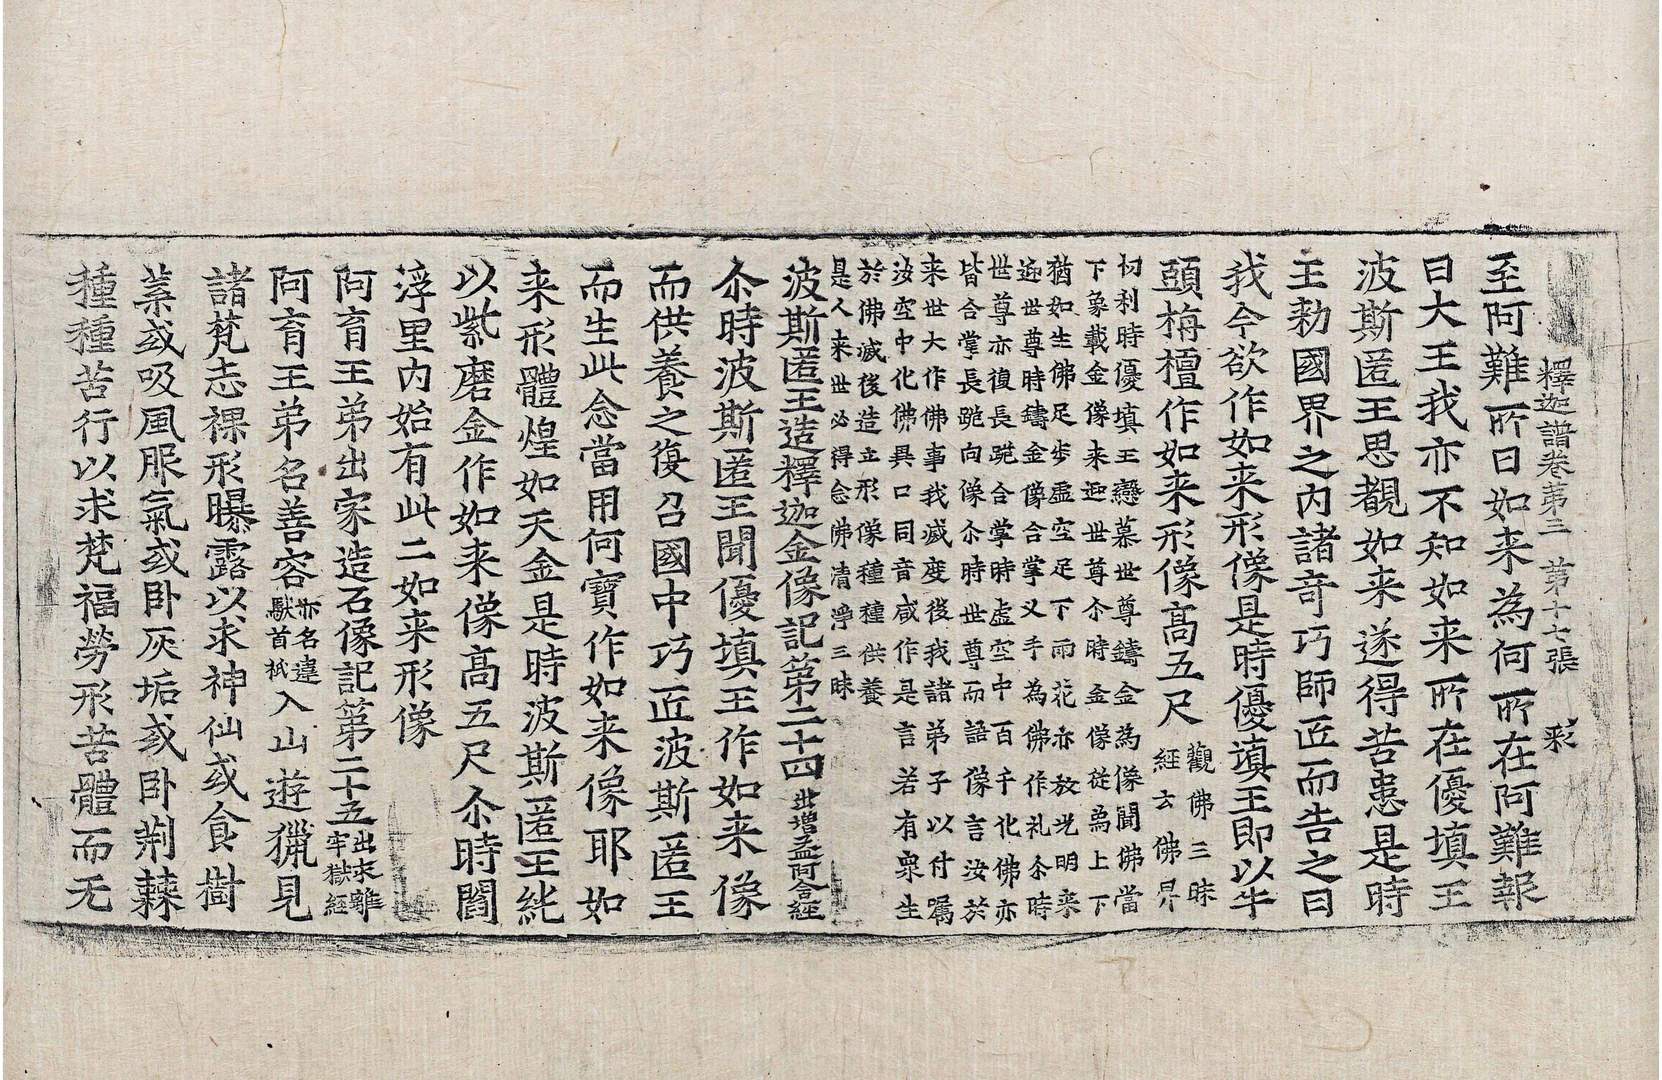 釋迦譜卷第三　第十七張　彩
至阿難所曰如来為何所在阿難報
曰大王我亦不知如来所在優填王
波斯匿王思覩如来遂得苦患是時
王勑國界之內諸奇巧師匠而告之曰
我今欲作如来形像是時優填王即以牛
頭栴檀作如来形像高五尺
觀佛三昧
經云佛昇
忉利時優填王戀慕世尊鑄金為像聞佛當
下象載金像来迎世尊尒時金像從象上下
猶如生佛足步虛空足下雨花亦放光明来
迎世尊時鑄金像合掌叉手為佛作礼尒時
世尊亦復長跪合掌時虛空中百千化佛亦
皆合掌長跪向像尒時世尊而語像言汝於
来世大作佛事我滅度後我諸弟子以付囑
汝空中化佛異口同音咸作是言若有衆生
於佛滅後造立形像種種供養
是人来世必得念佛清淨三昧
波斯匿王造釋迦金像記第二十四
出增壹阿含經
尒時波斯匿王聞優填王作如来像
而供養之復召國中巧匠波斯匿王
而生此念當用何寶作如来像耶如
来形體煌如天金是時波斯匿王純
以紫磨金作如来像高五尺尒時閻
浮里內始有此二如来形像
阿育王弟出家造石像記第二十五
出求離
牢獄經
阿育王弟名善容
亦名違
馱首祇
入山遊獵見
諸梵志裸形曝露以求神仙或食樹
葉或吸風服氣或卧灰垢或卧荆棘
種種苦行以求梵福勞形苦體而无